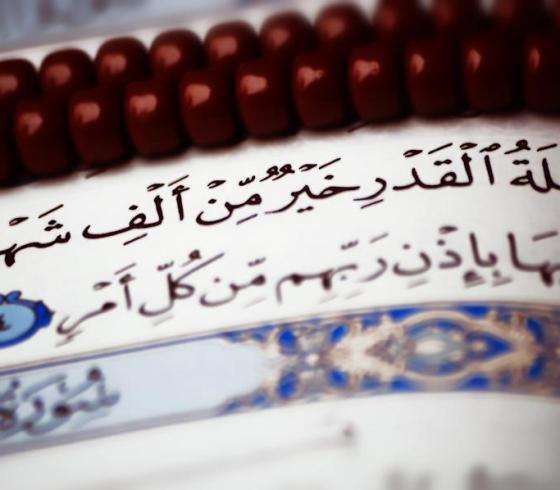 لَةُ ٱلْقَدْرِ خَيْرٌ مِّنْ أَلْفِ شَهْ
هَا بِإِذْنِ رَبِّهِم مِّن كُلِّ أَمْرٍ ٤
سُورَةُ